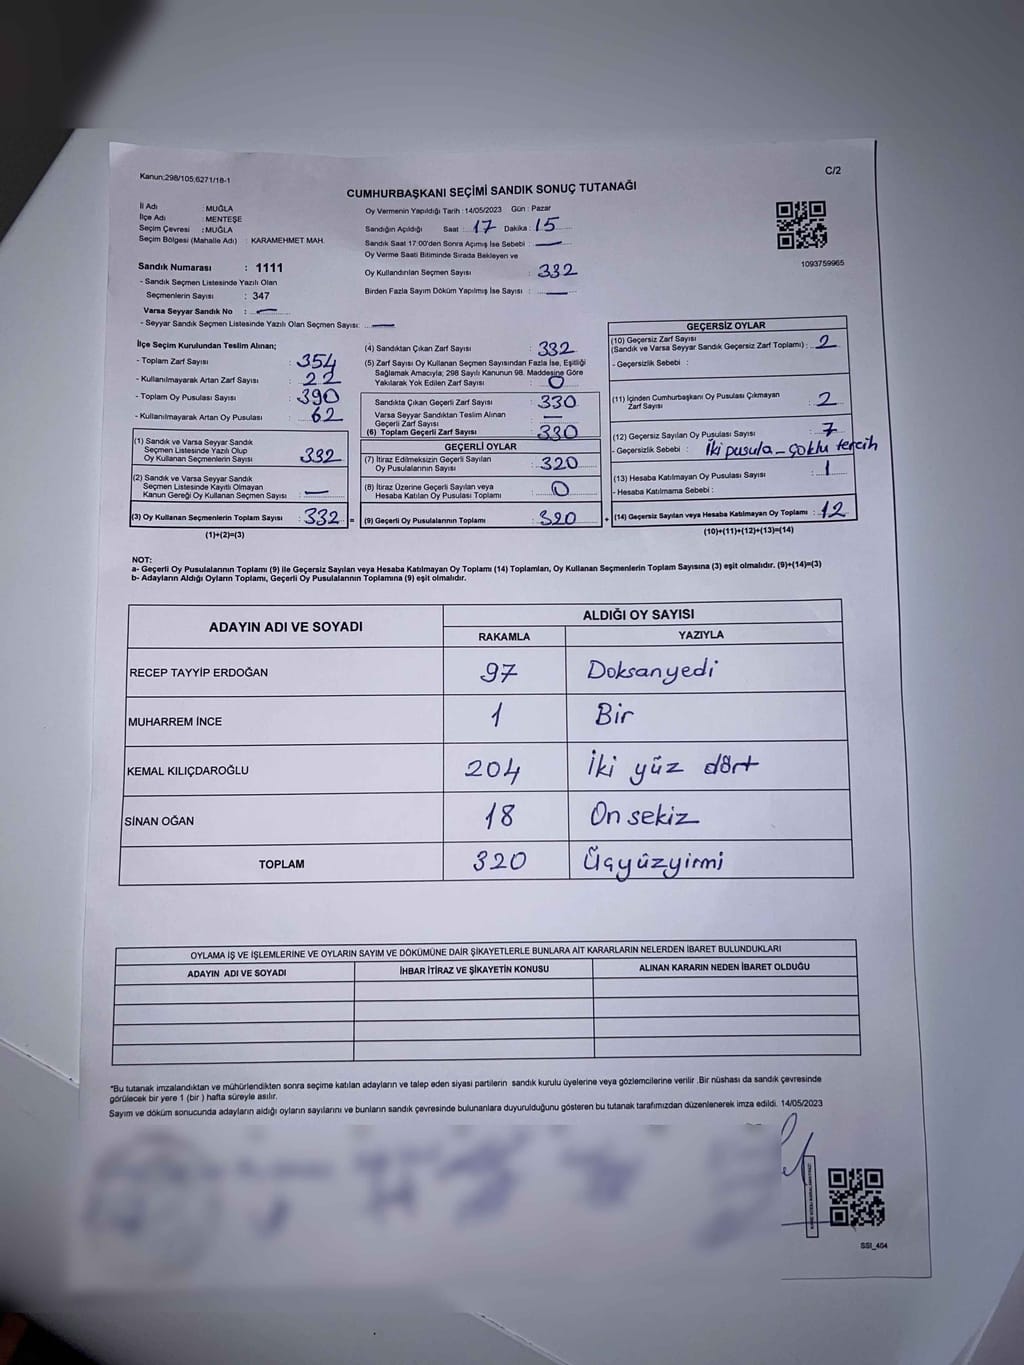 Kanun;298/105;6271/18-1
C/2
CUMHURBAŞKANI SEÇİMİ SANDIK SONUÇ TUTANAĞI
İl Adı : MUĞLA
İlçe Adı : MENTEŞE
Seçim Çevresi : MUĞLA
Seçim Bölgesi (Mahalle Adı) : KARAMEHMET MAH.
Sandık Numarası : 1111
- Sandık Seçmen Listesinde Yazılı Olan
Seçmenlerin Sayısı : 347
Varsa Seyyar Sandık No : —
- Seyyar Sandık Seçmen Listesinde Yazılı Olan Seçmen Sayısı: —
Oy Vermenin Yapıldığı Tarih : 14/05/2023 Gün : Pazar
Sandığın Açıldığı Saat : 17 Dakika : 15
Sandık Saat 17:00'den Sonra Açımış İse Sebebi : —
Oy Verme Saati Bitiminde Sırada Bekleyen ve
Oy Kullandırılan Seçmen Sayısı : 332
Birden Fazla Sayım Döküm Yapılmış İse Sayısı : —
1093759965
İlçe Seçim Kurulundan Teslim Alınan;
- Toplam Zarf Sayısı : 354
- Kullanılmayarak Artan Zarf Sayısı : 22
- Toplam Oy Pusulası Sayısı : 390
- Kullanılmayarak Artan Oy Pusulası : 62
(1) Sandık ve Varsa Seyyar Sandık
Seçmen Listesinde Yazılı Olup
Oy Kullanan Seçmenlerin Sayısı : 332
(2) Sandık ve Varsa Seyyar Sandık
Seçmen Listesinde Kayıtlı Olmayan
Kanun Gereği Oy Kullanan Seçmen Sayısı : —
(3) Oy Kullanan Seçmenlerin Toplam Sayısı : 332 =
(1)+(2)=(3)
(4) Sandıktan Çıkan Zarf Sayısı : 332
(5) Zarf Sayısı Oy Kullanan Seçmen Sayısından Fazla İse, Eşitliği
Sağlamak Amacıyla; 298 Sayılı Kanunun 98. Maddesine Göre
Yakılarak Yok Edilen Zarf Sayısı : 0
Sandıkta Çıkan Geçerli Zarf Sayısı : 330
Varsa Seyyar Sandıktan Teslim Alınan
Geçerli Zarf Sayısı : —
(6) Toplam Geçerli Zarf Sayısı : 330
GEÇERLİ OYLAR
(7) İtiraz Edilmeksizin Geçerli Sayılan
Oy Pusulalarının Sayısı : 320
(8) İtiraz Üzerine Geçerli Sayılan veya
Hesaba Katılan Oy Pusulası Toplamı : 0
(9) Geçerli Oy Pusulalarının Toplamı : 320 +
GEÇERSİZ OYLAR
(10) Geçersiz Zarf Sayısı
(Sandık ve Varsa Seyyar Sandık Geçersiz Zarf Toplamı) : 2
- Geçersizlik Sebebi :
(11) İçinden Cumhurbaşkanı Oy Pusulası Çıkmayan
Zarf Sayısı : 2
(12) Geçersiz Sayılan Oy Pusulası Sayısı : 7
- Geçersizlik Sebebi : İki pusula - çoklu tercih
(13) Hesaba Katılmayan Oy Pusulası Sayısı : 1
- Hesaba Katılmama Sebebi :
(14) Geçersiz Sayılan veya Hesaba Katılmayan Oy Toplamı : 12
(10)+(11)+(12)+(13)=(14)
NOT:
a- Geçerli Oy Pusulalarının Toplamı (9) ile Geçersiz Sayılan veya Hesaba Katılmayan Oy Toplamı (14) Toplamları, Oy Kullanan Seçmenlerin Toplam Sayısına (3) eşit olmalıdır. (9)+(14)=(3)
b- Adayların Aldığı Oyların Toplamı, Geçerli Oy Pusulalarının Toplamına (9) eşit olmalıdır.
ADAYIN ADI VE SOYADI
ALDIĞI OY SAYISI
RAKAMLA YAZIYLA
RECEP TAYYİP ERDOĞAN 97 Doksanyedi
MUHARREM İNCE 1 Bir
KEMAL KILIÇDAROĞLU 204 İki yüz dört
SİNAN OĞAN 18 On sekiz
TOPLAM 320 Üçyüzyirmi
OYLAMA İŞ VE İŞLEMLERİNE VE OYLARIN SAYIM VE DÖKÜMÜNE DAİR ŞİKAYETLERLE BUNLARA AİT KARARLARIN NELERDEN İBARET BULUNDUKLARI
ADAYIN ADI VE SOYADI İHBAR İTİRAZ VE ŞİKAYETİN KONUSU ALINAN KARARIN NEDEN İBARET OLDUĞU
*Bu tutanak imzalandıktan ve mühürlendikten sonra seçime katılan adayların ve talep eden siyasi partilerin sandık kurulu üyelerine veya gözlemcilerine verilir .Bir nüshası da sandık çevresinde
görülecek bir yere 1 (bir ) hafta süreyle asılır.
Sayım ve döküm sonucunda adayların aldığı oyların sayılarını ve bunların sandık çevresinde bulunanlara duyurulduğunu gösteren bu tutanak tarafımızdan düzenlenerek imza edildi. 14/05/2023
SSI_404